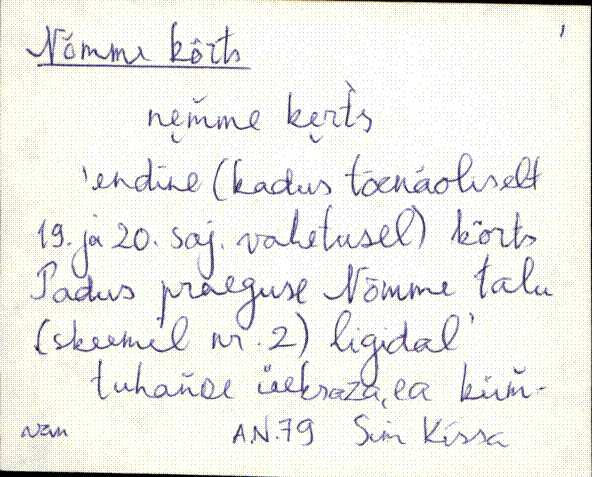 Nõmme kõrts
nẹm̆me kẹrt̀s
'endine (kadus tõenäoliselt
19. ja 20. saj. vahetusel) kõrts
Padus praeguse Nõmme talu
(skeemil nr. 2) ligidal'
A.N.79 Siin Kissa